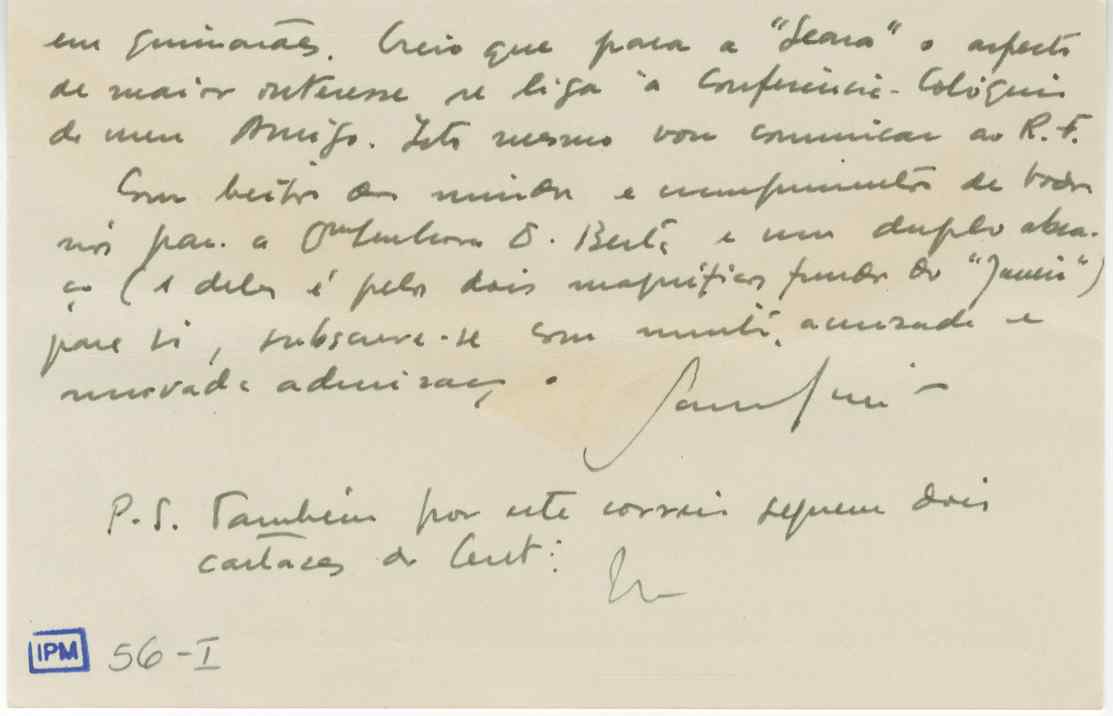 em Guimarães. Creio que para a "Seara" o aspecto
de maior interesse se liga à Conferência-Colóquio
do meu Amigo. Isto mesmo vou comunicar ao R. F.
Com beijos aos miúdos e cumprimentos de todos
nós para a Senhora D. Berta e um duplo abra-
ço (1 deles é pelos dois magníficos fundos do "Janeiro")
para si, subscreve-se com muita amizade e
renovada admiração.
P.S. Também por este correio seguem dois
cartazes do Cent:
IPM 56-I